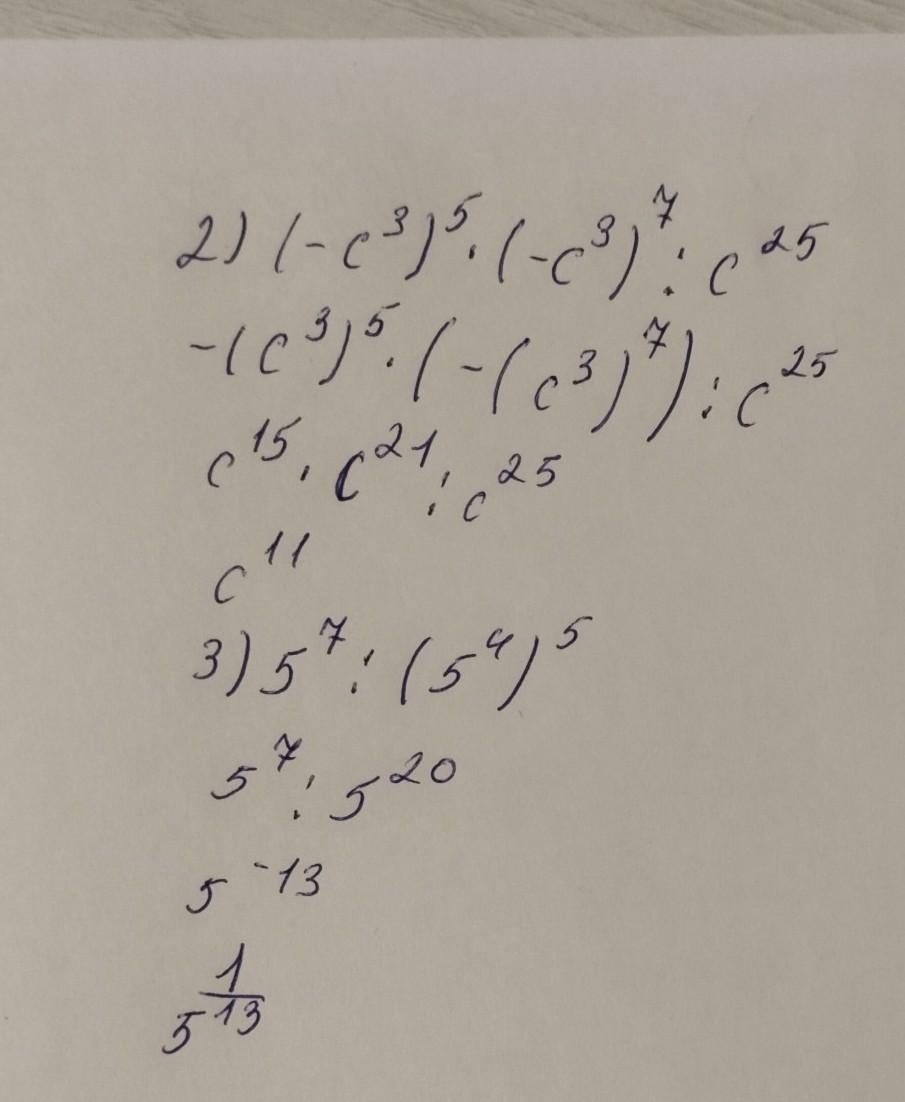 2) (-c³)⁵ · (-c³)⁷ : c²⁵
-(c³)⁵ · (-(c³)⁷) : c²⁵
c¹⁵ · c²¹ : c²⁵
c¹¹
3) 5⁷ : (5⁴)⁵
5⁷ : 5²⁰
5⁻¹³
1
5¹³